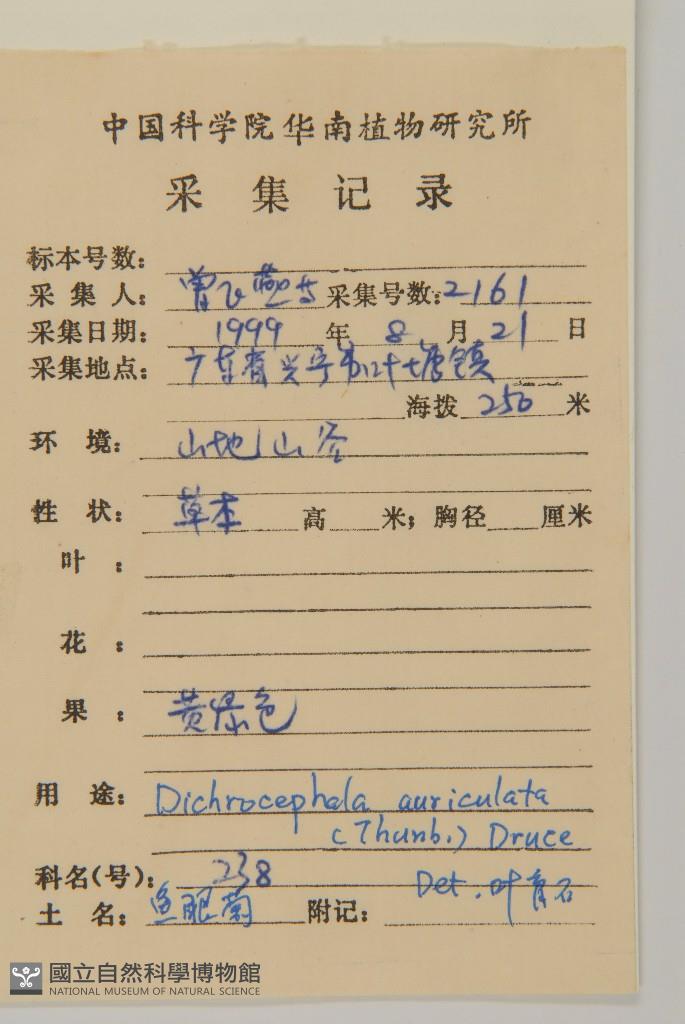 中国科学院华南植物研究所
采集记录
标本号数:
采集人: 曾飞燕等 采集号数: 2161
采集日期: 1999 年 8 月 21 日
采集地点: 广东省兴宁市叶塘镇
海拨 250 米
环境: 山地山谷
性状: 草本 高 米; 胸径 厘米
叶:
花:
果: 黄绿色
用途: Dichrocephala auriculata
(Thunb.) Druce
科名(号): 238
Det. 叶育石
土名: 鱼眼菊 附记:
國立自然科學博物館
NATIONAL MUSEUM OF NATURAL SCIENCE